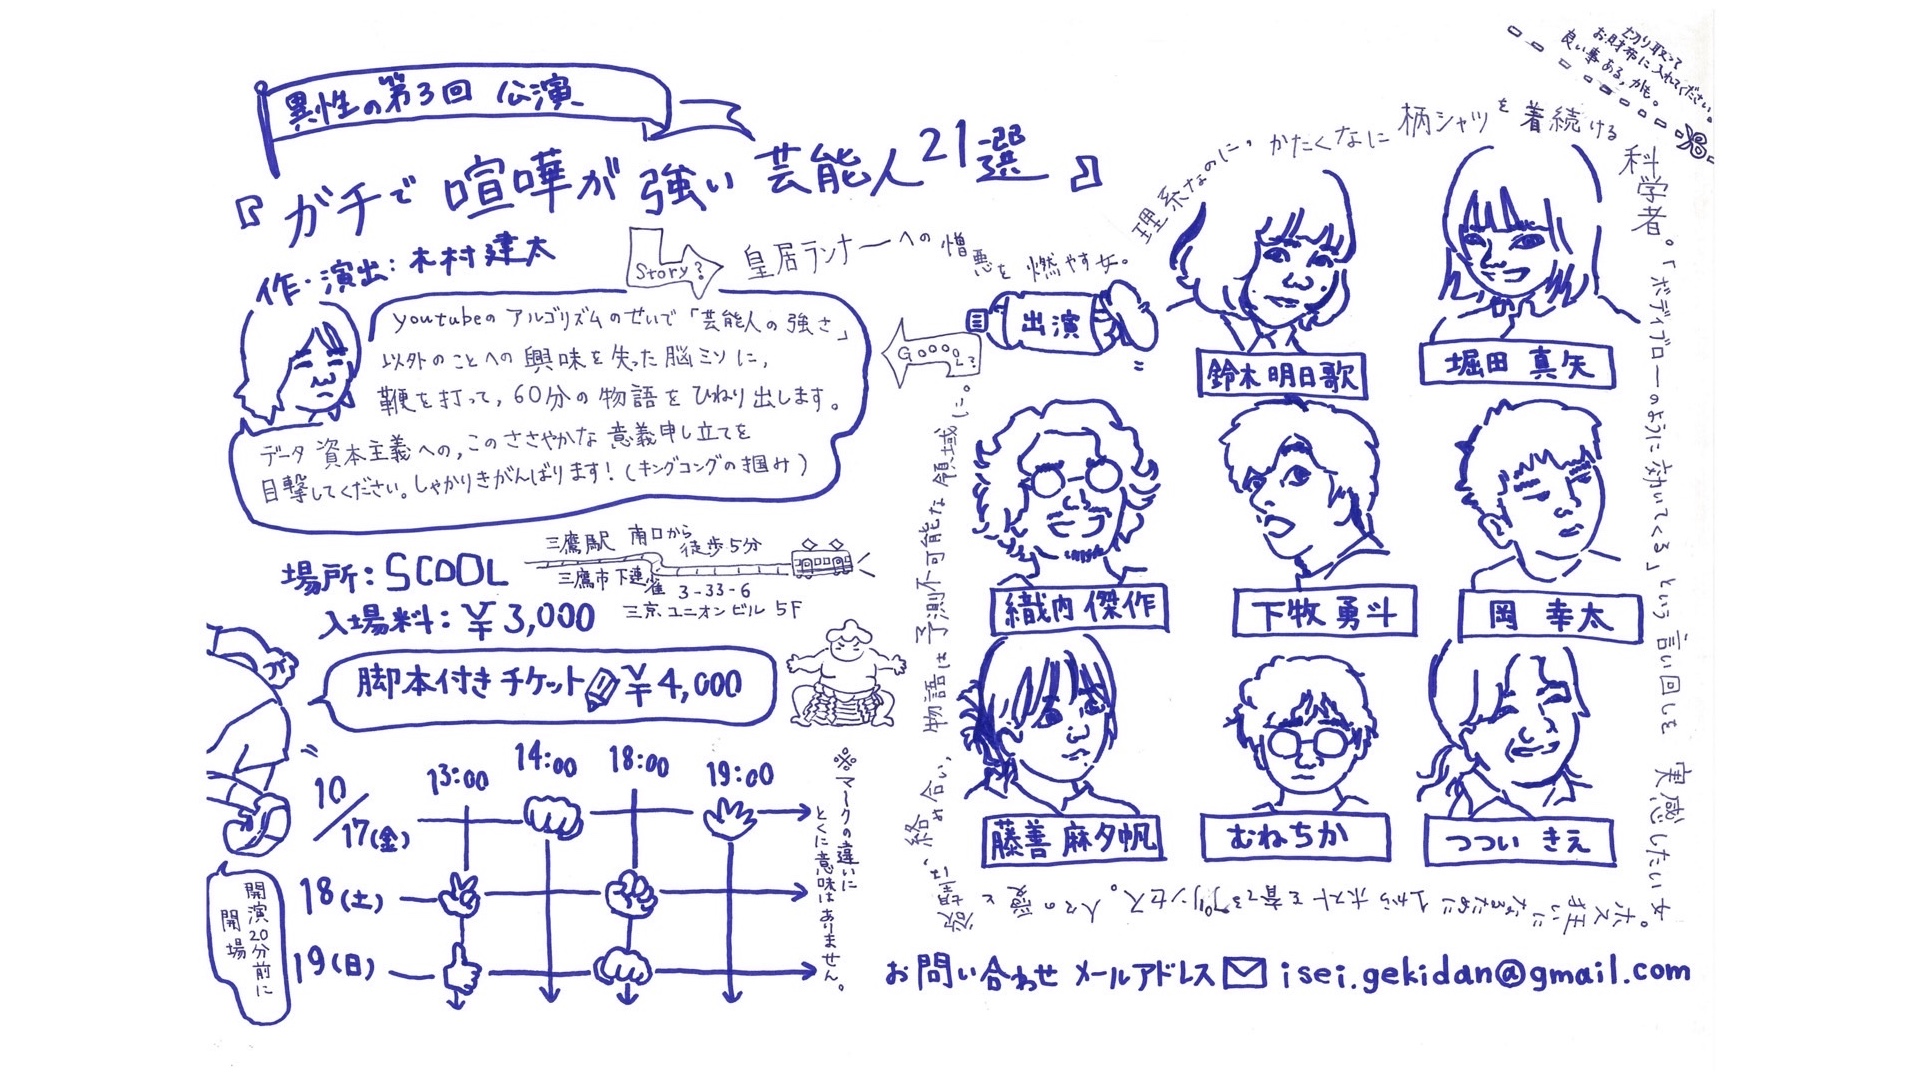 異性の第3回 公演
『ガチで喧嘩が強い芸能人21選』
作・演出：木村建太
youtubeのアルゴリズムのせいで「芸能人の強さ」
以外のことへの興味を失った脳ミソに、
鞭を打って、60分の物語をひねり出します。
データ資本主義への、このささやかな意義申し立てを
目撃してください。しゃかりきがんばります！（キングコングの掴み）
Story?
皇居ランナーへの憎悪を燃やす女。
理系なのに、かたくなに柄シャツを着続ける科学者。
「ボディブローのように効いてくる」という言い回しを実感したい女。
ホス狂いだったがだが上からホストを育てるプリンセス。
人々の愛と欲望は、絡み合い、物語は予測不可能な領域に。
Goooal?
切り取って
お財布に入れてください。
良い事ある、かも。
出演
鈴木明日歌
堀田 真矢
織内 傑作
下牧 勇斗
岡 幸太
藤善 麻夕帆
むねちか
つつい きえ
場所：SCOOL
三鷹駅 南口から徒歩5分
三鷹市下連雀 3-33-6
三京ユニオンビル 5F
入場料：¥3,000
脚本付きチケット ¥4,000
13:00 14:00 18:00 19:00
10/17(金)
18(土)
19(日)
※マークの違いに
とくに意味はありません。
開演20分前に
開場
お問い合わせ メールアドレス isei.gekidan@gmail.com